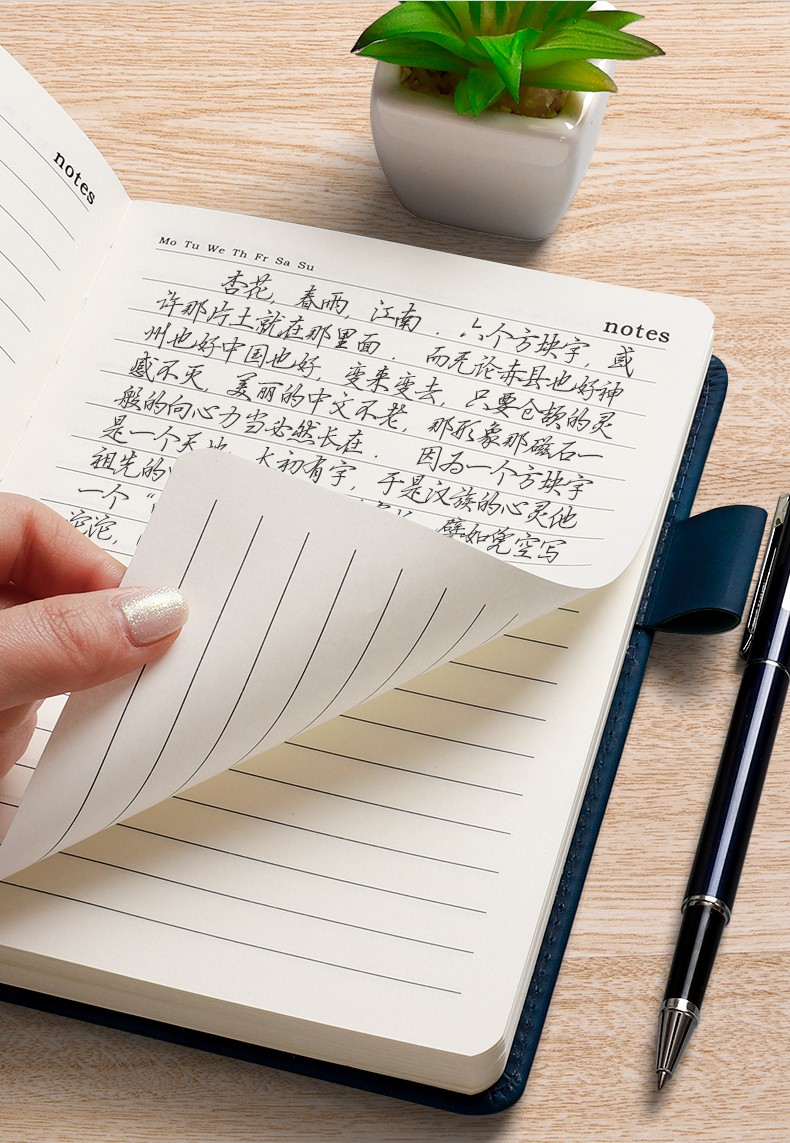 notes
Mo Tu We Th Fr Sa Su
notes
杏花, 春雨, 江南. 六个方块字, 或
许那片土就在那里面. 而无论赤县也好神
州也好中国也好, 变来变去, 只要仓颉的灵
感不灭, 美丽的中文不老, 那形象那磁石一
般的向心力当必然长在. 因为一个方块字
是一个天地. 太初有字, 于是汉族的心灵他
祖先的 譬如凭空写
一个 “
沱沱,